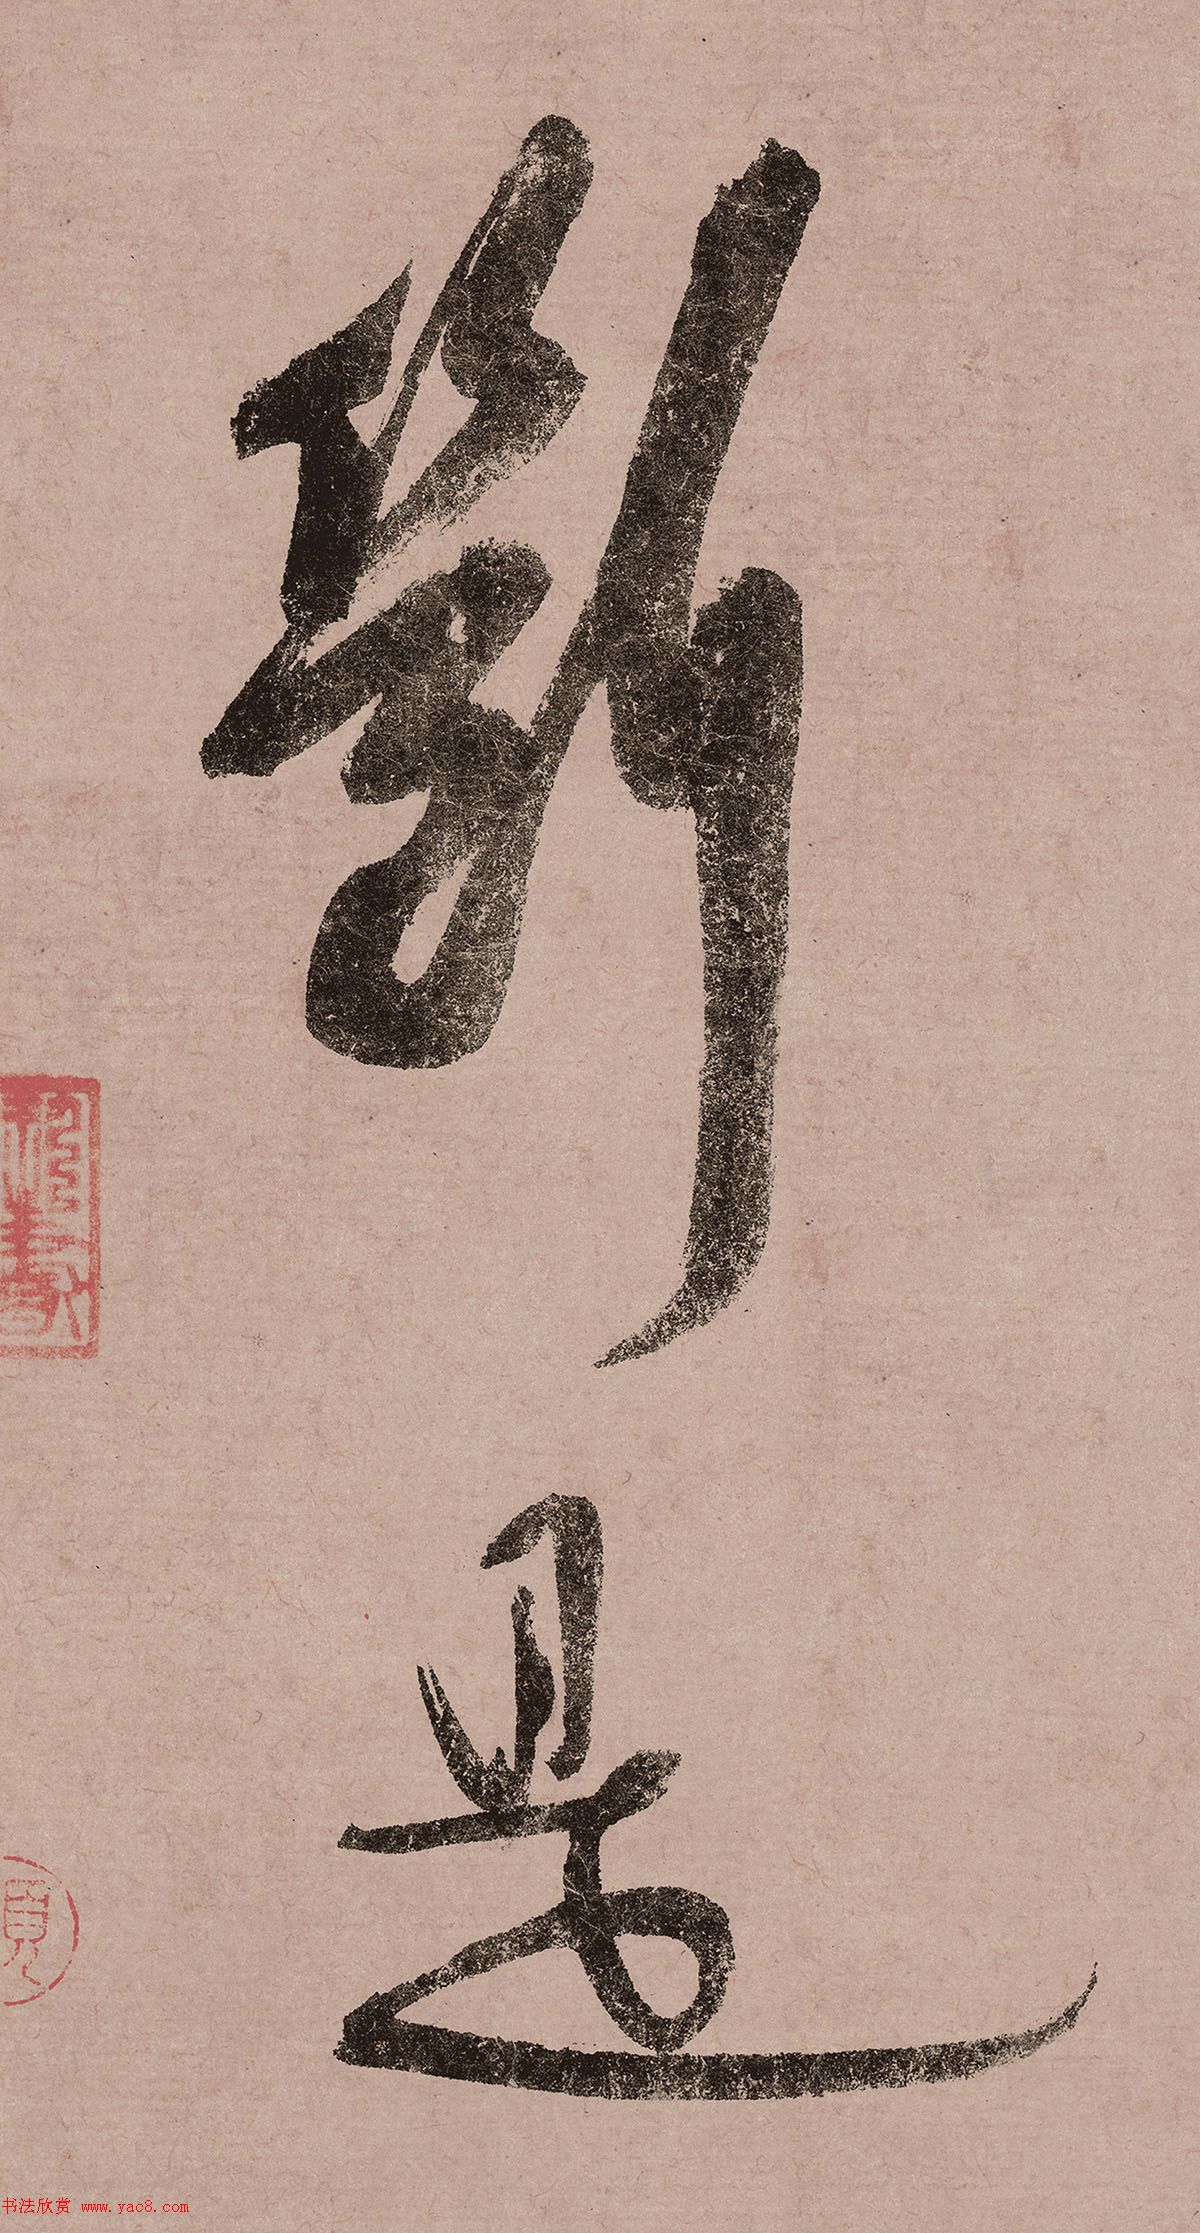 斷是
书法欣赏 www.yac8.com